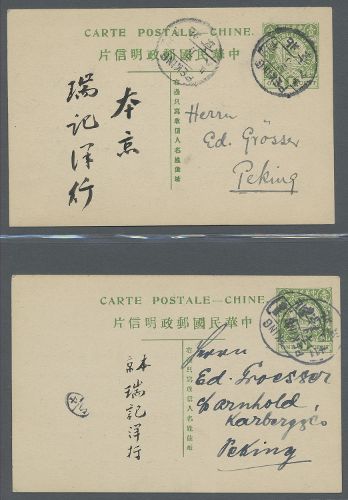 CARTE POSTALE — CHINE.
中華民國郵政明信片
右邊只寫收信人名姓住址
PEKING
PEKING
本京
瑞記洋行
Herrn
Ed. Grösser
Peking
CARTE POSTALE — CHINE.
中華民國郵政明信片
右邊只寫收信人名姓住址
PEKING
本京
瑞記洋行
Herrn
Ed. Groesser
Arnhold,
Karberg & Co
Peking